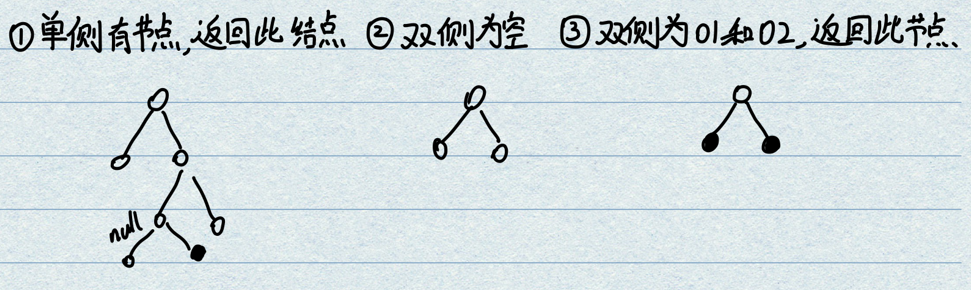 ①单侧有节点,返回此结点 ②双侧为空 ③双侧为O1和O2,返回此节点、
null